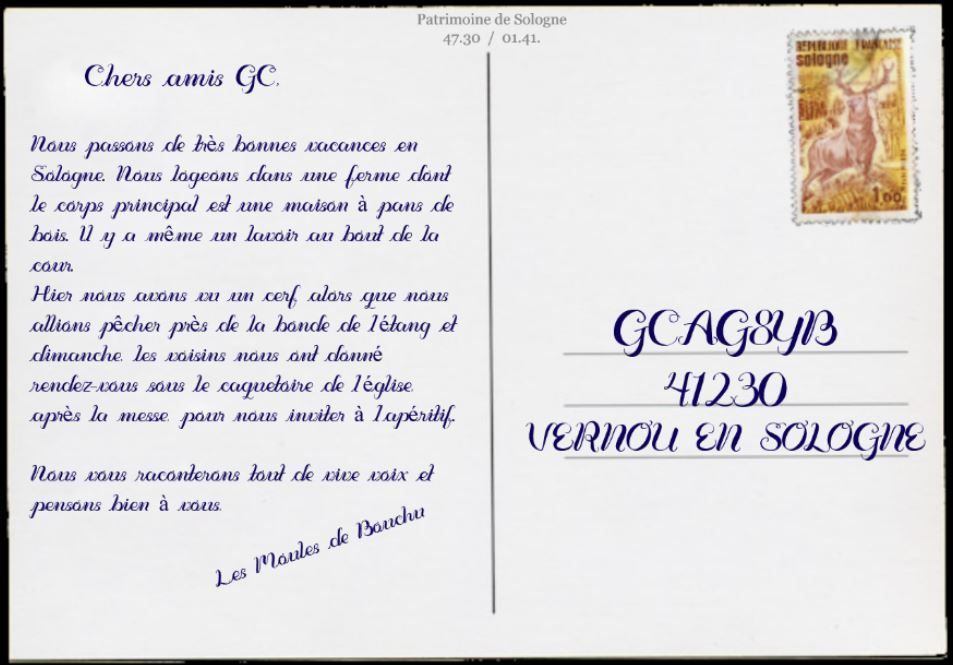 Patrimoine de Sologne
47.30 / 01.41.
REPUBLIQUE FRANCAISE
sologne
1.00
Chers amis GC,
Nous passons de très bonnes vacances en
Sologne. Nous logeons dans une ferme dont
le corps principal est une maison à pans de
bois. Il y a même un lavoir au bout de la
cour.
Hier nous avons vu un cerf, alors que nous
allions pêcher près de la bonde de l'étang et
dimanche, les voisins nous ont donné
rendez-vous sous le caquetoire de l'église,
après la messe, pour nous inviter à l'apéritif.
Nous vous raconterons tout de vive voix et
pensons bien à vous.
Les Moules de Bouchu
GCAG8YB
41230
VERNOU EN SOLOGNE